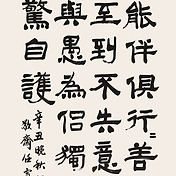 能伴俱行〻善
至到不失意
與愚為侶獨
驚自護
辛丑晚秋
齋任